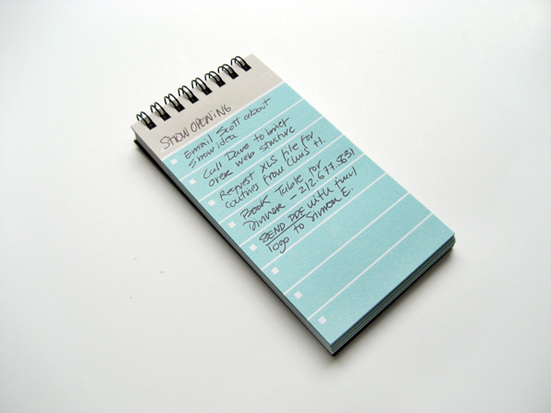 SHOW OPENING
Email Scott about
Show idea
Call Dave to brief
over web structure
Request XLS file for
from Claus H.
Book Table for
Dinner – 212.677.5831
SEND PDF with final
logo to Simon E.